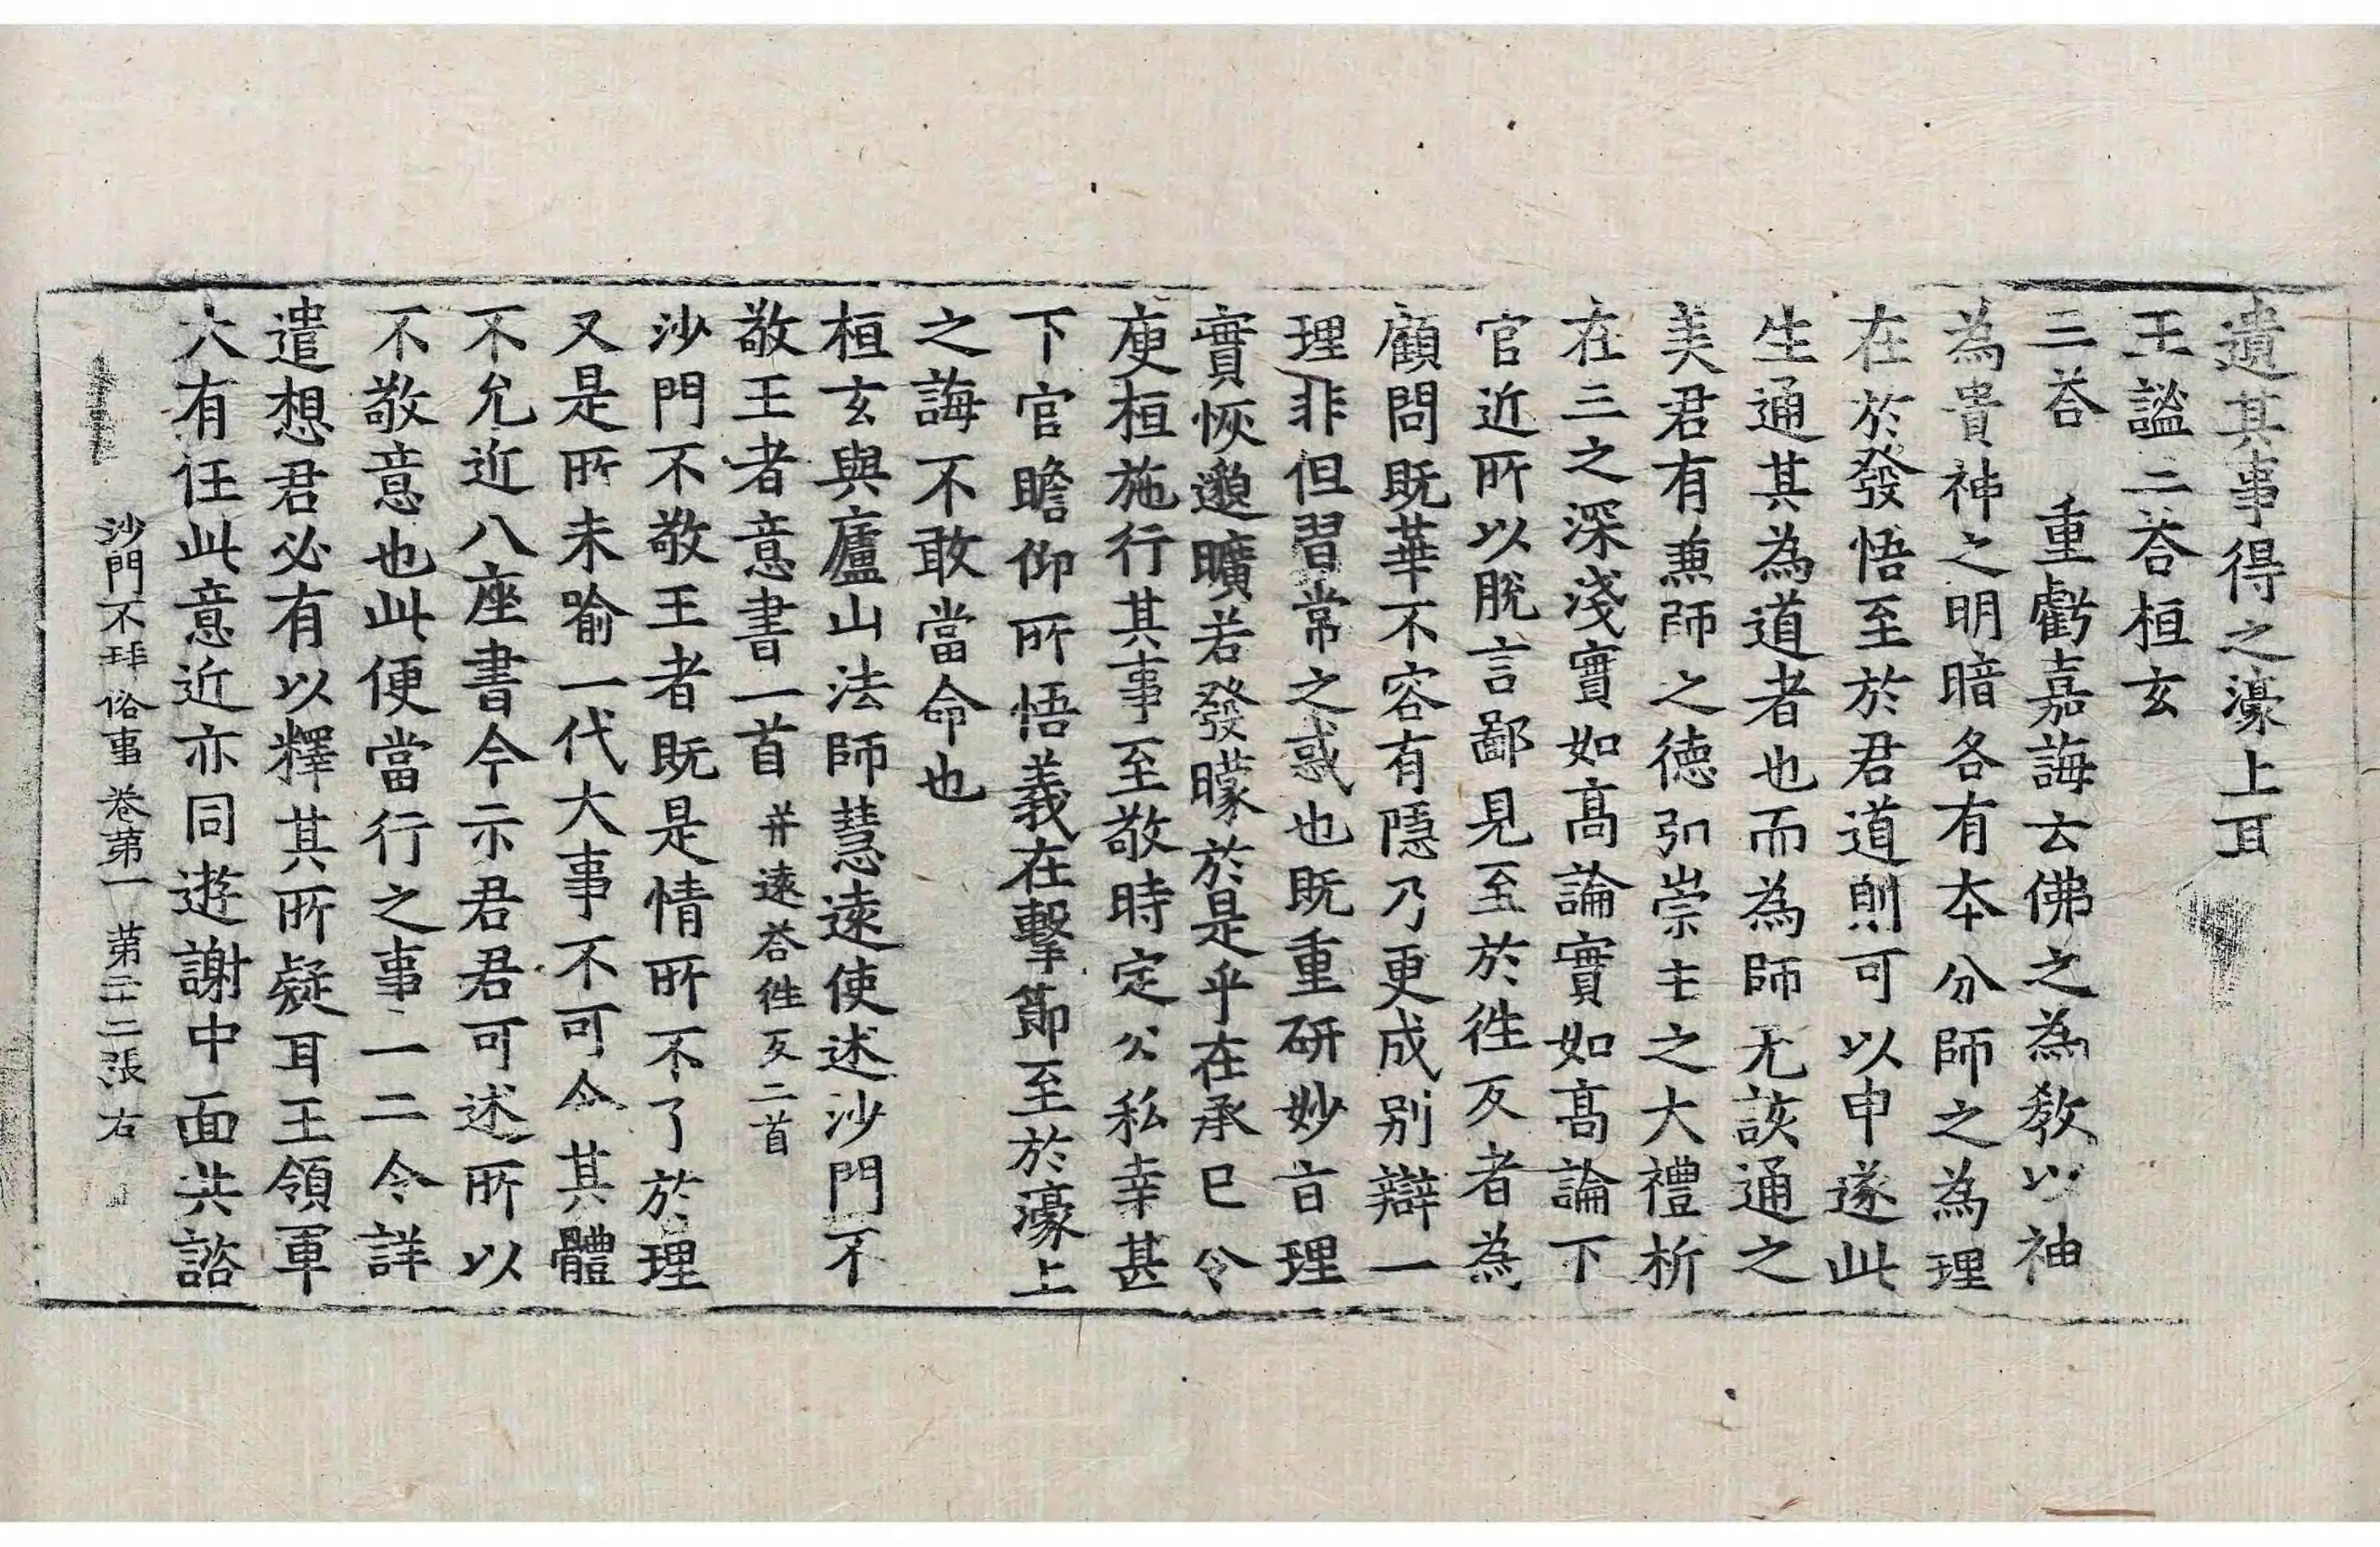 遺其事得之濠上耳
王謐二荅桓玄
二荅　重虧嘉誨云佛之為教以神
為貴神之明暗各有本分師之為理
在於發悟至於君道則可以申遂此
生通其為道者也而為師无該通之
美君有兼師之德弘崇主之大禮析
在三之深淺實如髙論實如髙論下
官近所以脱言鄙見至於徃反者為
顧問既華不容有隱乃更成别辯一
理非但習常之惑也既重研妙旨理
實恢邈曠若發矇於是乎在承已令
庾桓施行其事至敬時定公私幸甚
下官瞻仰所悟義在擊節至於濠上
之誨不敢當命也
桓玄與廬山法師慧遠使述沙門不
敬王者意書一首并遠荅徃反二首
沙門不敬王者既是情所不了於理
又是所未喻一代大事不可令其體
不允近八座書今示君君可述所以
不敬意也此便當行之事一二令詳
遣想君必有以釋其所疑耳王領軍
大有任此意近亦同遊謝中面共諮
沙門不拜俗事卷第一　第二十二張　右